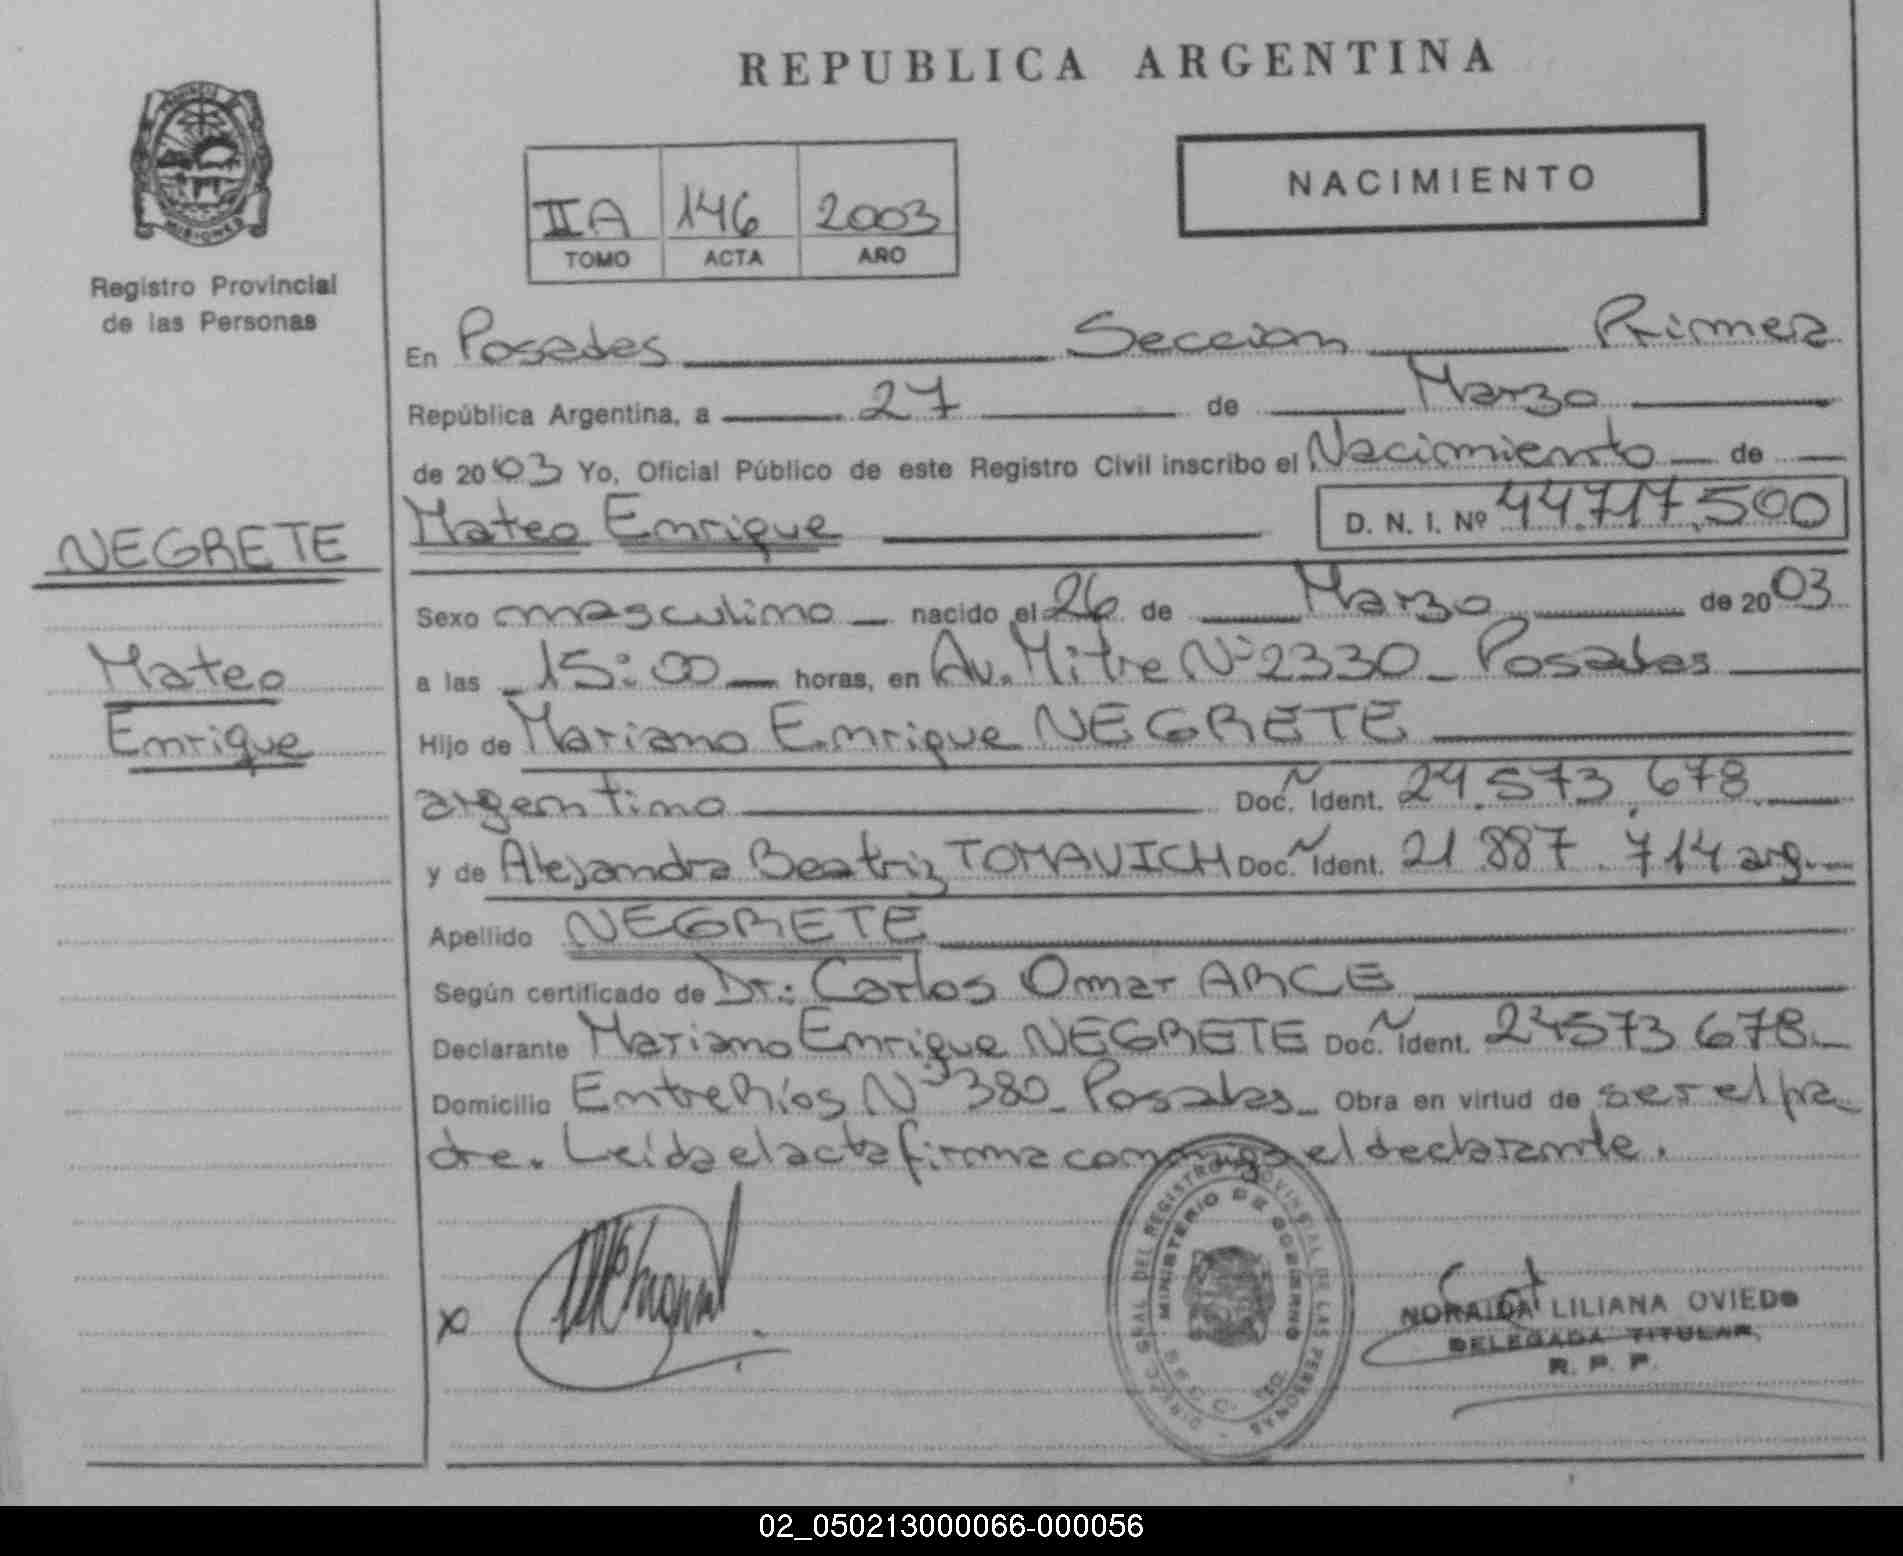 REPUBLICA ARGENTINA
PROVINCIA DE
MISIONES
Registro Provincial
de las Personas
NACIMIENTO
IIA 146 2003
TOMO ACTA AÑO
En Posadas Seccion Primera
República Argentina, a 27 de Marzo
de 2003 Yo, Oficial Público de este Registro Civil inscribo el Nacimiento de
Mateo Enrique D. N. I. Nº 44.717.500
NEGRETE
Mateo
Enrique
Sexo masculino nacido el 26 de Marzo de 2003
a las 15:00 horas, en Av. Mitre Nº 2330 Posadas
Hijo de Mariano Enrique NEGRETE
argentino Doc. Ident. 24.573.678
y de Alejandra Beatriz TOMAVICH Doc. Ident. 21.887.714 arg.
Apellido NEGRETE
Según certificado de Dr.: Carlos Omar ARCE
Declarante Mariano Enrique NEGRETE Doc. Ident. 24573678
Domicilio Entre Ríos Nº 380 Posadas Obra en virtud de ser el pa
dre. Leida el acta firma conmigo el declarante.
x
DIREC. GRAL DEL REGISTRO PROVINCIAL DE LAS PERSONAS
MINISTERIO DE GOBIERNO
NORAIDA LILIANA OVIEDO
DELEGADA TITULAR
R. P. P.
02_050213000066-000056